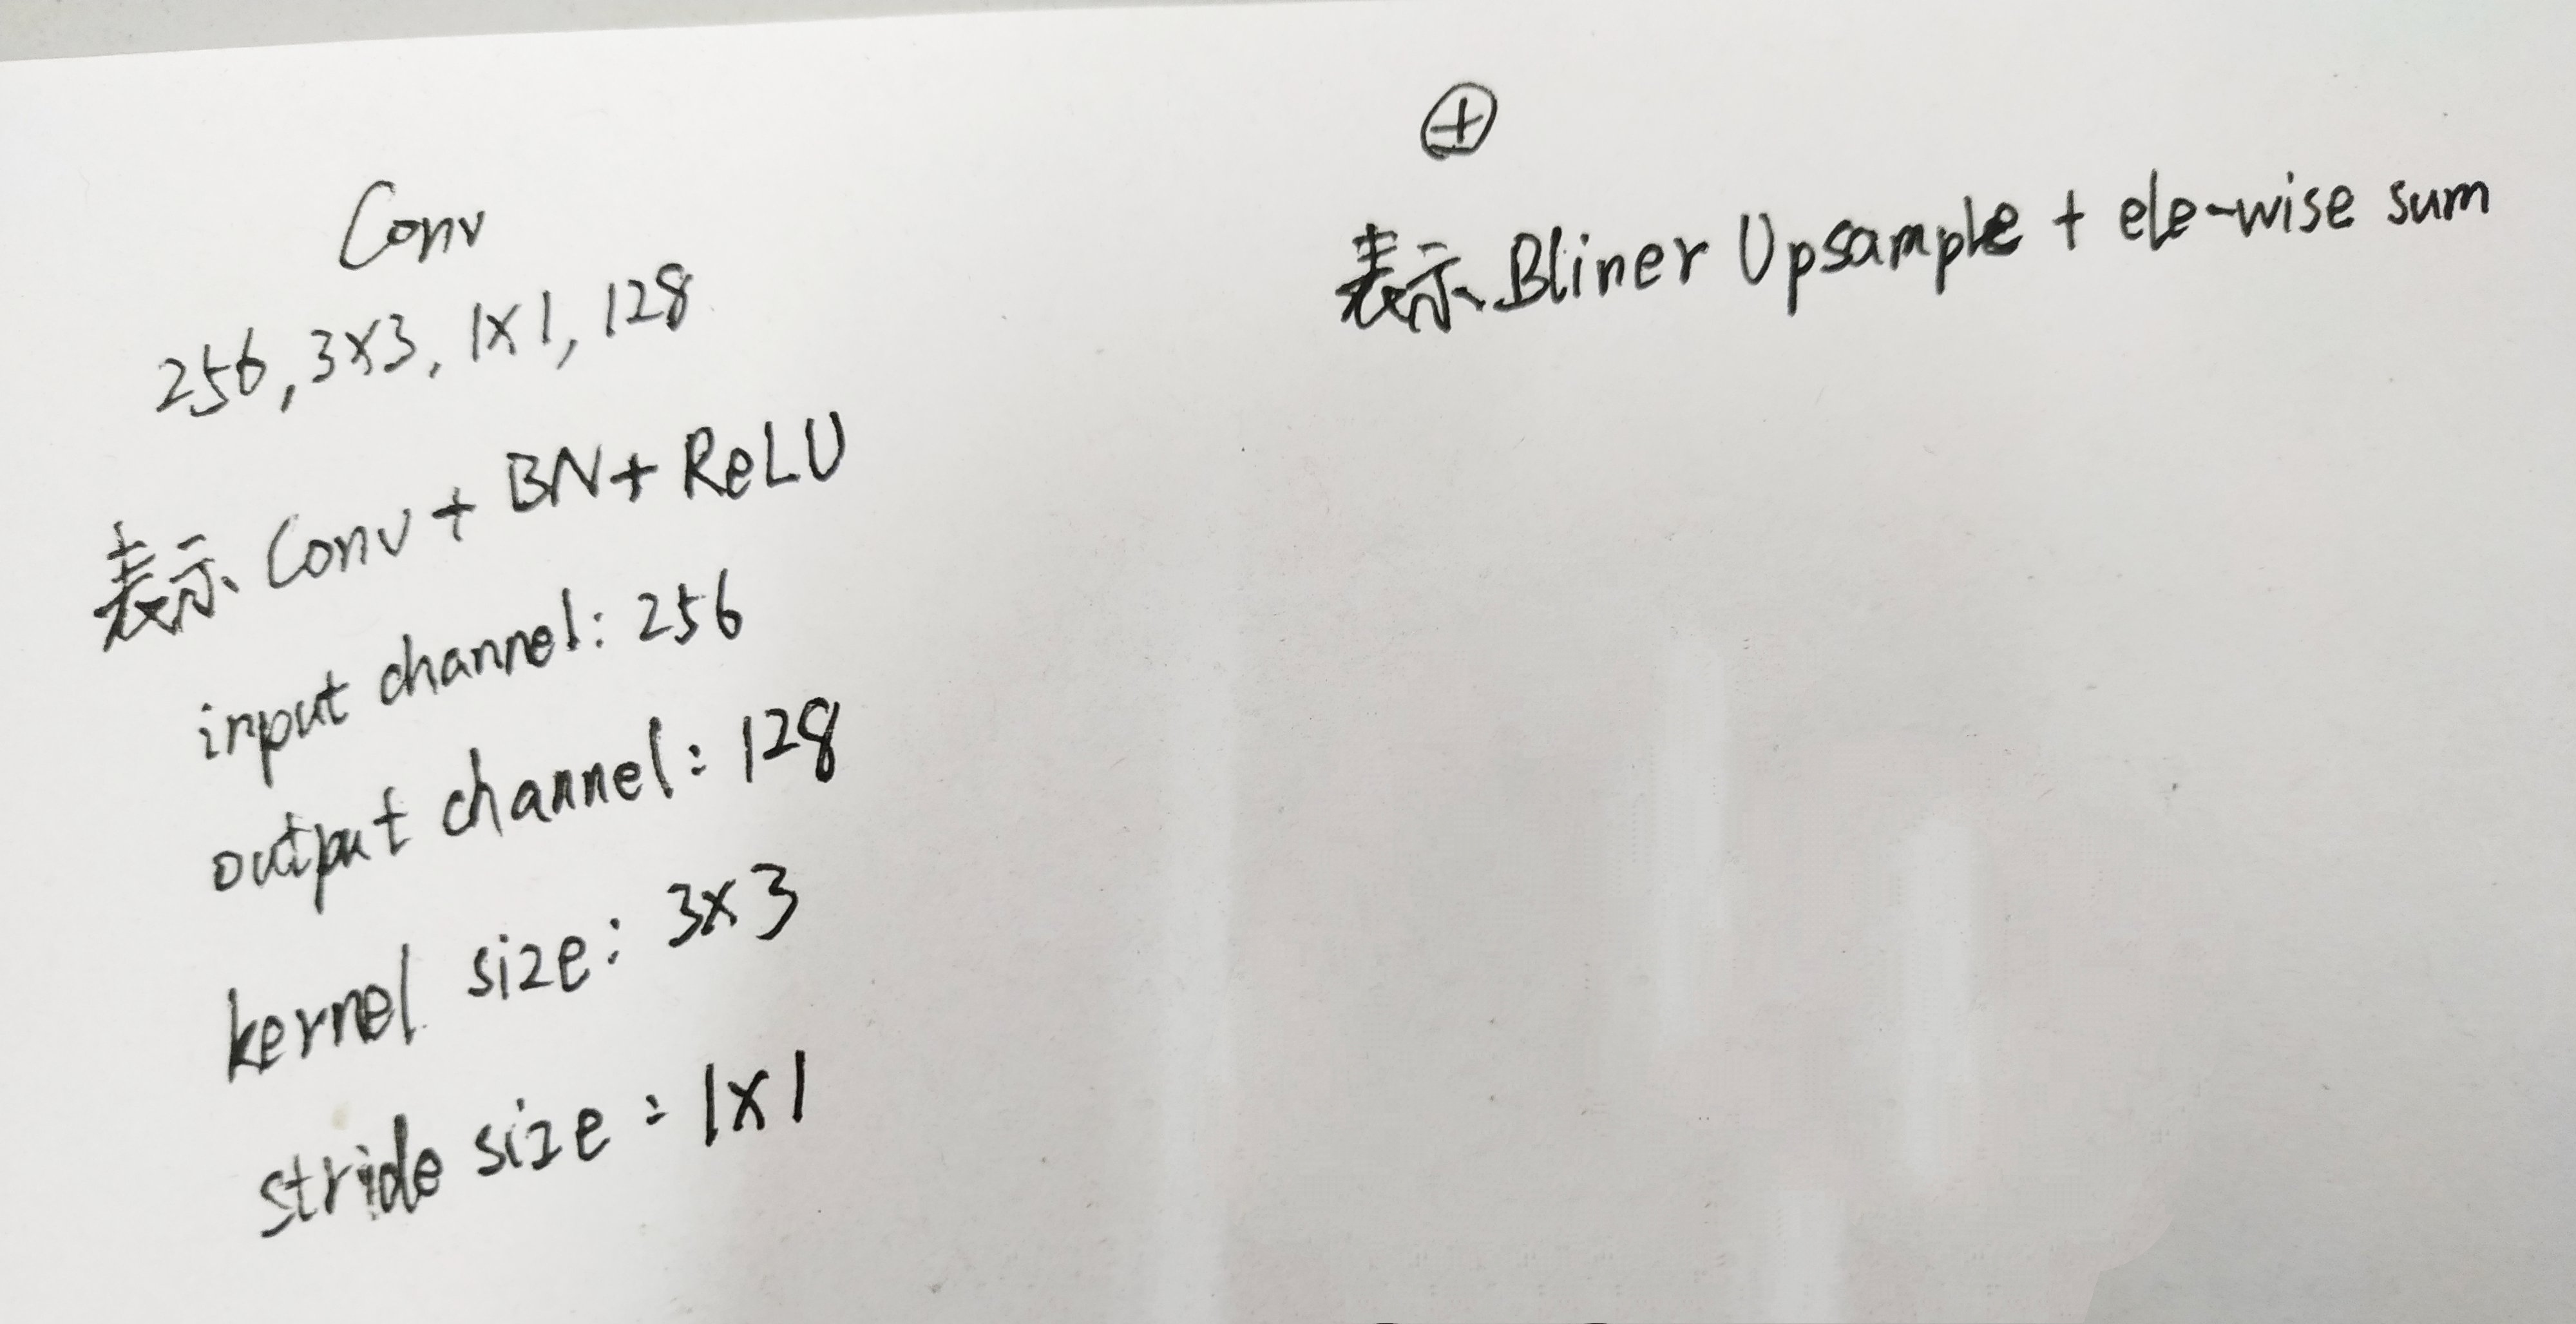 Conv
256, 3×3, 1×1, 128
表示 Conv + BN + ReLU
input channel: 256
output channel: 128
kernel size: 3×3
stride size: 1×1
⊕
表示 Bliner Upsample + ele-wise sum